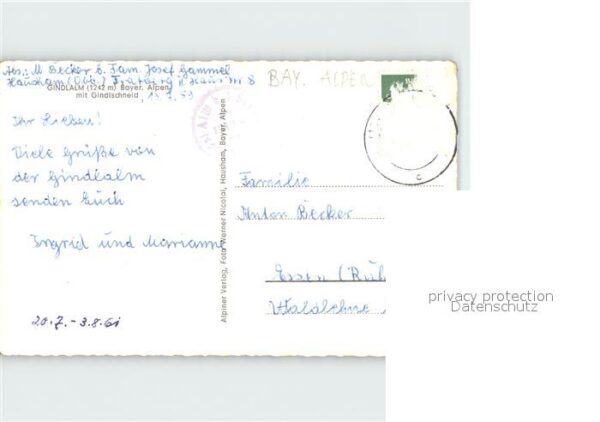 Abs.: M Becker b. Fam. Josef Gammel
Hausham (Obb.)
GINDLALM (1242 m) Bayer. Alpen
mit Gindlschneid
BAY. ALPEN
Ihr Lieben!
Viele Grüße von
der Gindlalm
senden Euch
Ingrid und Marianne
20.7.-3.8.61
Alpiner Verlag, Foto Werner Nicolai, Hausham, Bayer. Alpen
Familie
Anton Becker
Essen (Ruh
Waldlehne
c
privacy protection
Datenschutz